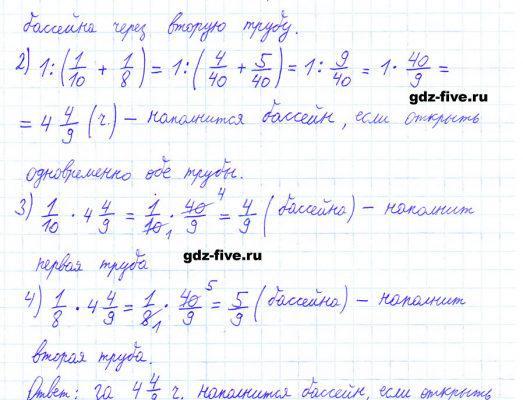 бассейна через вторую трубу.
2) 1 : (1/10 + 1/8) = 1 : (4/40 + 5/40) = 1 : 9/40 = 1 · 40/9 =
gdz-five.ru
= 4 4/9 (ч.) – наполнится бассейн, если открыть
одновременно обе трубы.
3) 1/10 · 4 4/9 = 1/10 1 · 40/9 4 = 4/9 (бассейна) – наполнит
gdz-five.ru
первая труба
4) 1/8 · 4 4/9 = 1/8 1 · 40/9 5 = 5/9 (бассейна) – наполнит
вторая труба.
Ответ: за 4 4/9 ч. наполнится бассейн, если открыть